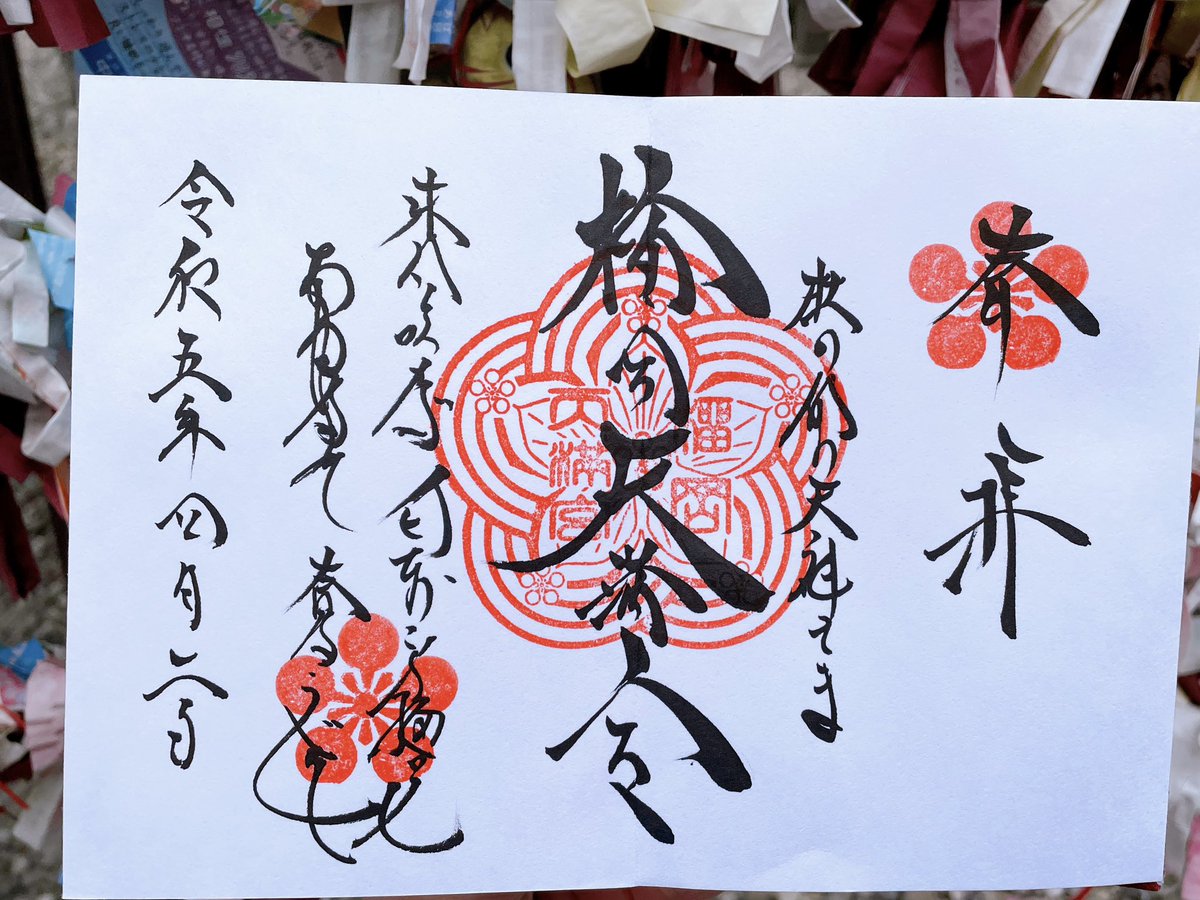 奉拝
杜の都の天神さま
榴岡天満宮
榴岡
天満宮
東風吹かば 匂ひおこせよ梅の花
あるじなしとて 春なわすれそ
令和五年四月六日